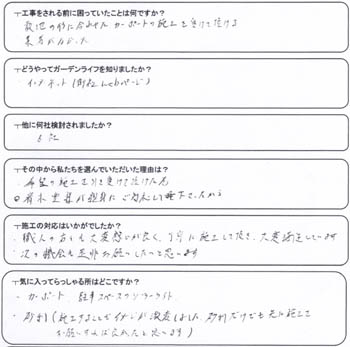 工事をされる前に困っていたことは何ですか?
敷地の形に合わせたカーポートの施工を受けて頂ける
業者がなかった
どうやってガーデンライフを知りましたか?
インターネット(御社webページ)
他に何社検討されましたか?
6社
その中から私たちを選んでいただいた理由は?
・希望の施工を引き受けて頂けた為
親身に ご対応して
施工の対応はいかがでしたか?
・職人の方も大変感じが良く、丁寧に施工して頂き、大変満足しています
・次の機会も是非お願いしたいと思います
気に入ってらっしゃる所はどこですか?
・カーポート 駐車スペースのソーラーライト
・砂利(施工することでイメージが激変しました。砂利だけでも先に施工して
お願いすれば良かったと思います)